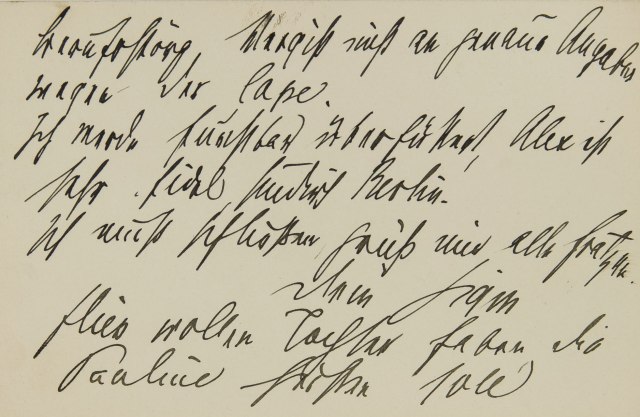 Berufsstörg, Vergiß nicht an genaue Angaben
wegen der Cape.
Ich werde furchtbar überfüttert, Alex ist
sehr fidel, studirt Berlin.
Ich muß schließen grüß mir alle Fratzen.
Dein Sigm
Flies wollen Tochter haben, die
Pauline heißen soll